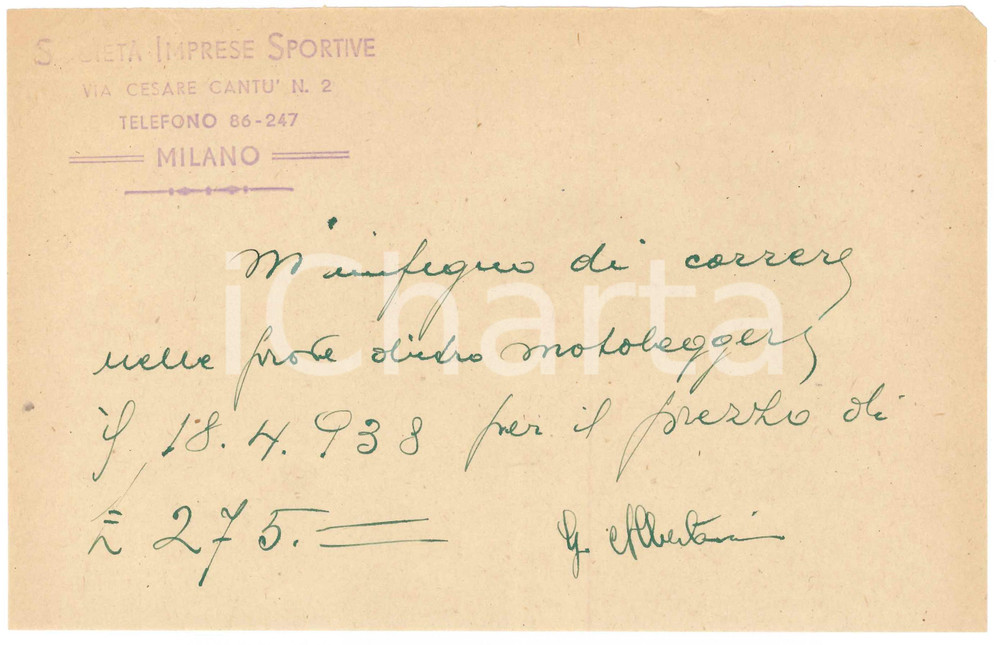 SOCIETÀ IMPRESE SPORTIVE
VIA CESARE CANTU' N. 2
TELEFONO 86-247
MILANO
M'impegno di correre
nelle prove dietro motoleggere
il 18.4.938 per il prezzo di
£ 275.=
G. Albertani
iCharta